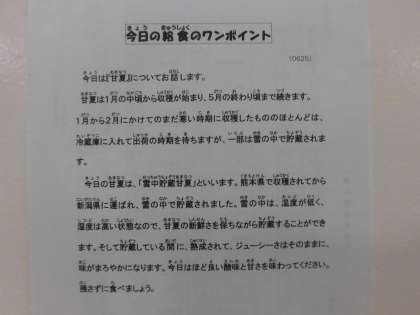 今日の給食のワンポイント
(0625)
今日は『甘夏』についてお話します。
甘夏は1月の中頃から収穫が始まり、5月の終わり頃まで続きます。
1月から2月にかけてのまだ寒い時期に収穫したもののほとんどは、
冷蔵庫に入れて出荷の時期を待ちますが、一部は雪の中で貯蔵されま
す。
今日の甘夏は、「雪中貯蔵甘夏」といいます。熊本県で収穫されてから
新潟県に運ばれ、雪の中で貯蔵されました。雪の中は、温度が低く、
湿度は高い状態なので、甘夏の新鮮さを保ちながら貯蔵することができ
ます。そして貯蔵している間に、熟成されて、ジューシーさはそのままに、
味がまろやかになります。今日はほど良い酸味と甘さを味わってください。
残さずに食べましょう。